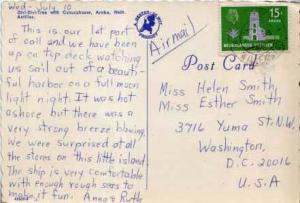 Wed - July 10
Divi-Divi-Tree with Cunucuhouse, Aruba, Neth. Antilles.
This is our 1st port
of call and we have been
up on top deck watching
us sail out of a beauti-
ful harbor on a full moon
light night. It was hot
ashore but there was a
very strong breeze blowing.
We were surprised at all
the stores on this little island.
The ship is very comfortable
with enough rough seas to
make it fun. Anna & Ruth
Airmail
15 c
NEDERLANDSE ANTILLEN
Post Card
Miss Helen Smith,
Miss Esther Smith
3716 Yuma St. N.W.
Washington,
D.C. 20016
U.S.A